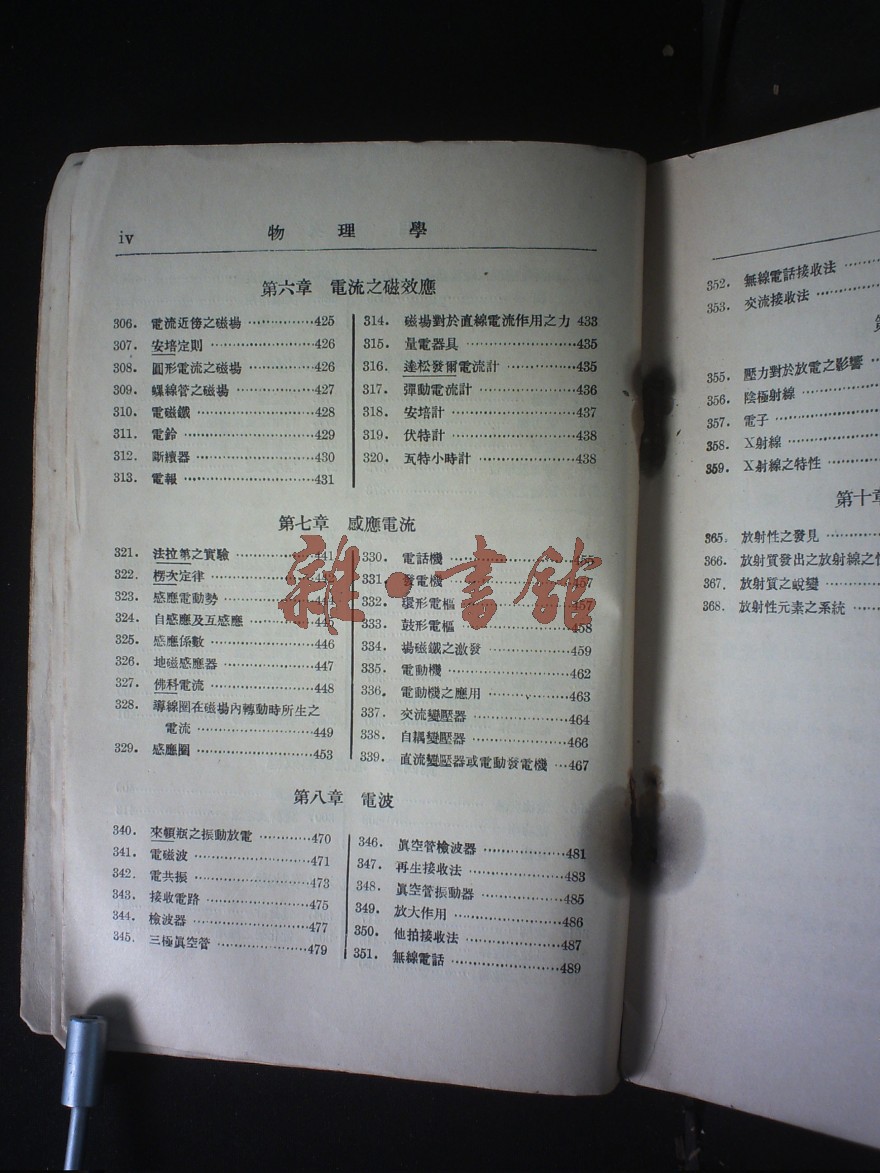 iv 物理學
第六章 電流之磁效應
306. 電流近傍之磁場 ……………425
307. 安培定則 ……………426
308. 圓形電流之磁場 ……………426
309. 螺線管之磁場 ……………427
310. 電磁鐵 ……………428
311. 電鈴 ……………429
312. 斷續器 ……………430
313. 電報 ……………431
314. 磁場對於直線電流作用之力 433
315. 量電器具 ……………435
316. 達松發爾電流計 ……………435
317. 彈動電流計 ……………436
318. 安培計 ……………437
319. 伏特計 ……………438
320. 瓦特小時計 ……………438
第七章 感應電流
321. 法拉第之實驗 ……………441
322. 楞次定律 ……………
323. 感應電動勢 ……………444
324. 自感應及互感應 ……………445
325. 感應係數 ……………446
326. 地磁感應器 ……………447
327. 佛科電流 ……………448
328. 導線圈在磁場內轉動時所生之
電流 ……………449
329. 感應圈 ……………453
330. 電話機 ……………455
331. 發電機 ……………457
332. 環形電樞 ……………457
333. 鼓形電樞 ……………458
334. 場磁鐵之激發 ……………459
335. 電動機 ……………462
336. 電動機之應用 ……………463
337. 交流變壓器 ……………464
338. 自耦變壓器 ……………466
339. 直流變壓器或電動發電機 …467
第八章 電波
340. 來頓瓶之振動放電 …………470
341. 電磁波 ……………471
342. 電共振 ……………473
343. 接收電路 ……………475
344. 檢波器 ……………477
345. 三極眞空管 ……………479
346. 眞空管檢波器 ……………481
347. 再生接收法 ……………483
348. 眞空管振動器 ……………485
349. 放大作用 ……………486
350. 他拍接收法 ……………487
351. 無線電話 ……………489
352. 無線電話接收法 ……
353. 交流接收法 ……
第
355. 壓力對於放電之影響 ……
356. 陰極射線 ……
357. 電子 ……
358. X射線 ……
359. X射線之特性 ……
第十章
365. 放射性之發見 ……
366. 放射質發出之放射線之
367. 放射質之蛻變 ……
368. 放射性元素之系統 ……
雜·書館